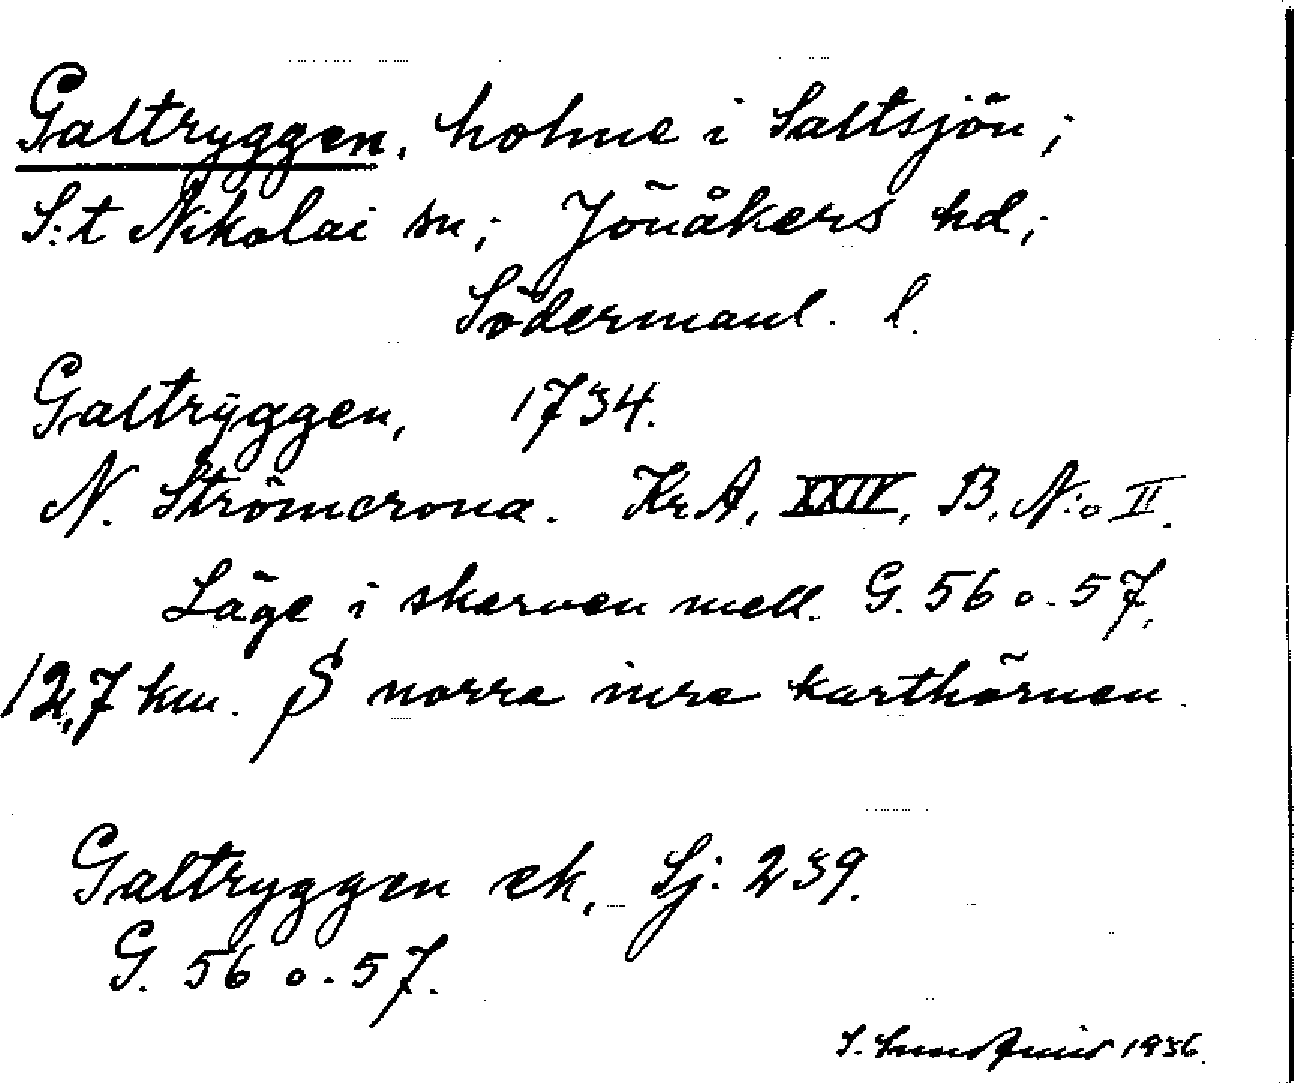 Galtryggen, holme i Saltsjön;
S:t Nikolai sn; Jönåkers hd;
Södermanl. l.
Galtryggen, 1734.
N. Strömcrona. Kr.A, XXIV, B, N:o II.
Läge i skerven mell. G. 56 o. 57,
12,7 km. S norra inre karthörnen.
Galtryggen ek, Sj: 239.
G. 56 o. 57.
S. 1936.